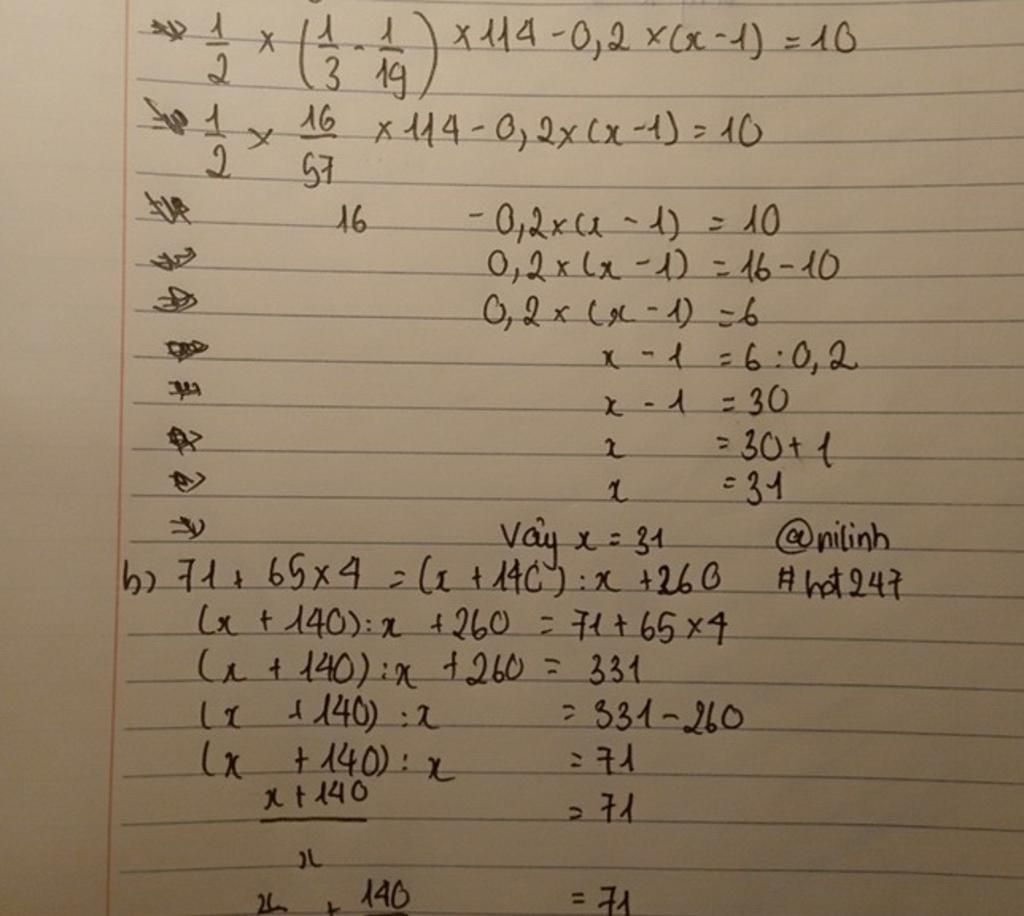 ⇒ 1/2 × (1/3 - 1/19) × 114 - 0,2 × (x - 1) = 10
⇒ 1/2 × 16/57 × 114 - 0,2 × (x - 1) = 10
⇒ 16 - 0,2 × (x - 1) = 10
⇒ 0,2 × (x - 1) = 16 - 10
⇒ 0,2 × (x - 1) = 6
⇒ x - 1 = 6 : 0,2
⇒ x - 1 = 30
⇒ x = 30 + 1
⇒ x = 31
⇒ Vậy x = 31 @nilinh
b) 71 + 65 × 4 = (x + 140) : x + 260 # hot247
(x + 140) : x + 260 = 71 + 65 × 4
(x + 140) : x + 260 = 331
(x + 140) : x = 331 - 260
(x + 140) : x = 71
x + 140 / x = 71
x + 140 = 71